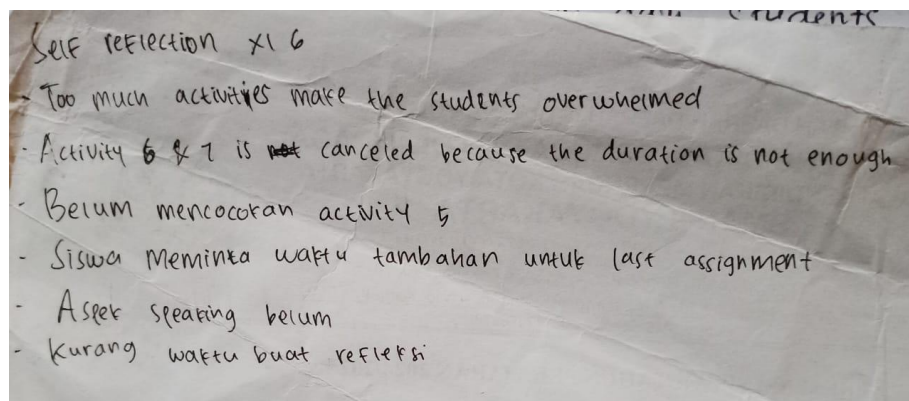 students
Self reflection XI 6
- Too much activities make the students overwhelmed
- Activity 6 & 7 is canceled because the duration is not enough
- Belum mencocokan activity 5
- Siswa meminta waktu tambahan untuk last assignment
- Aspek speaking belum
- Kurang waktu buat refleksi